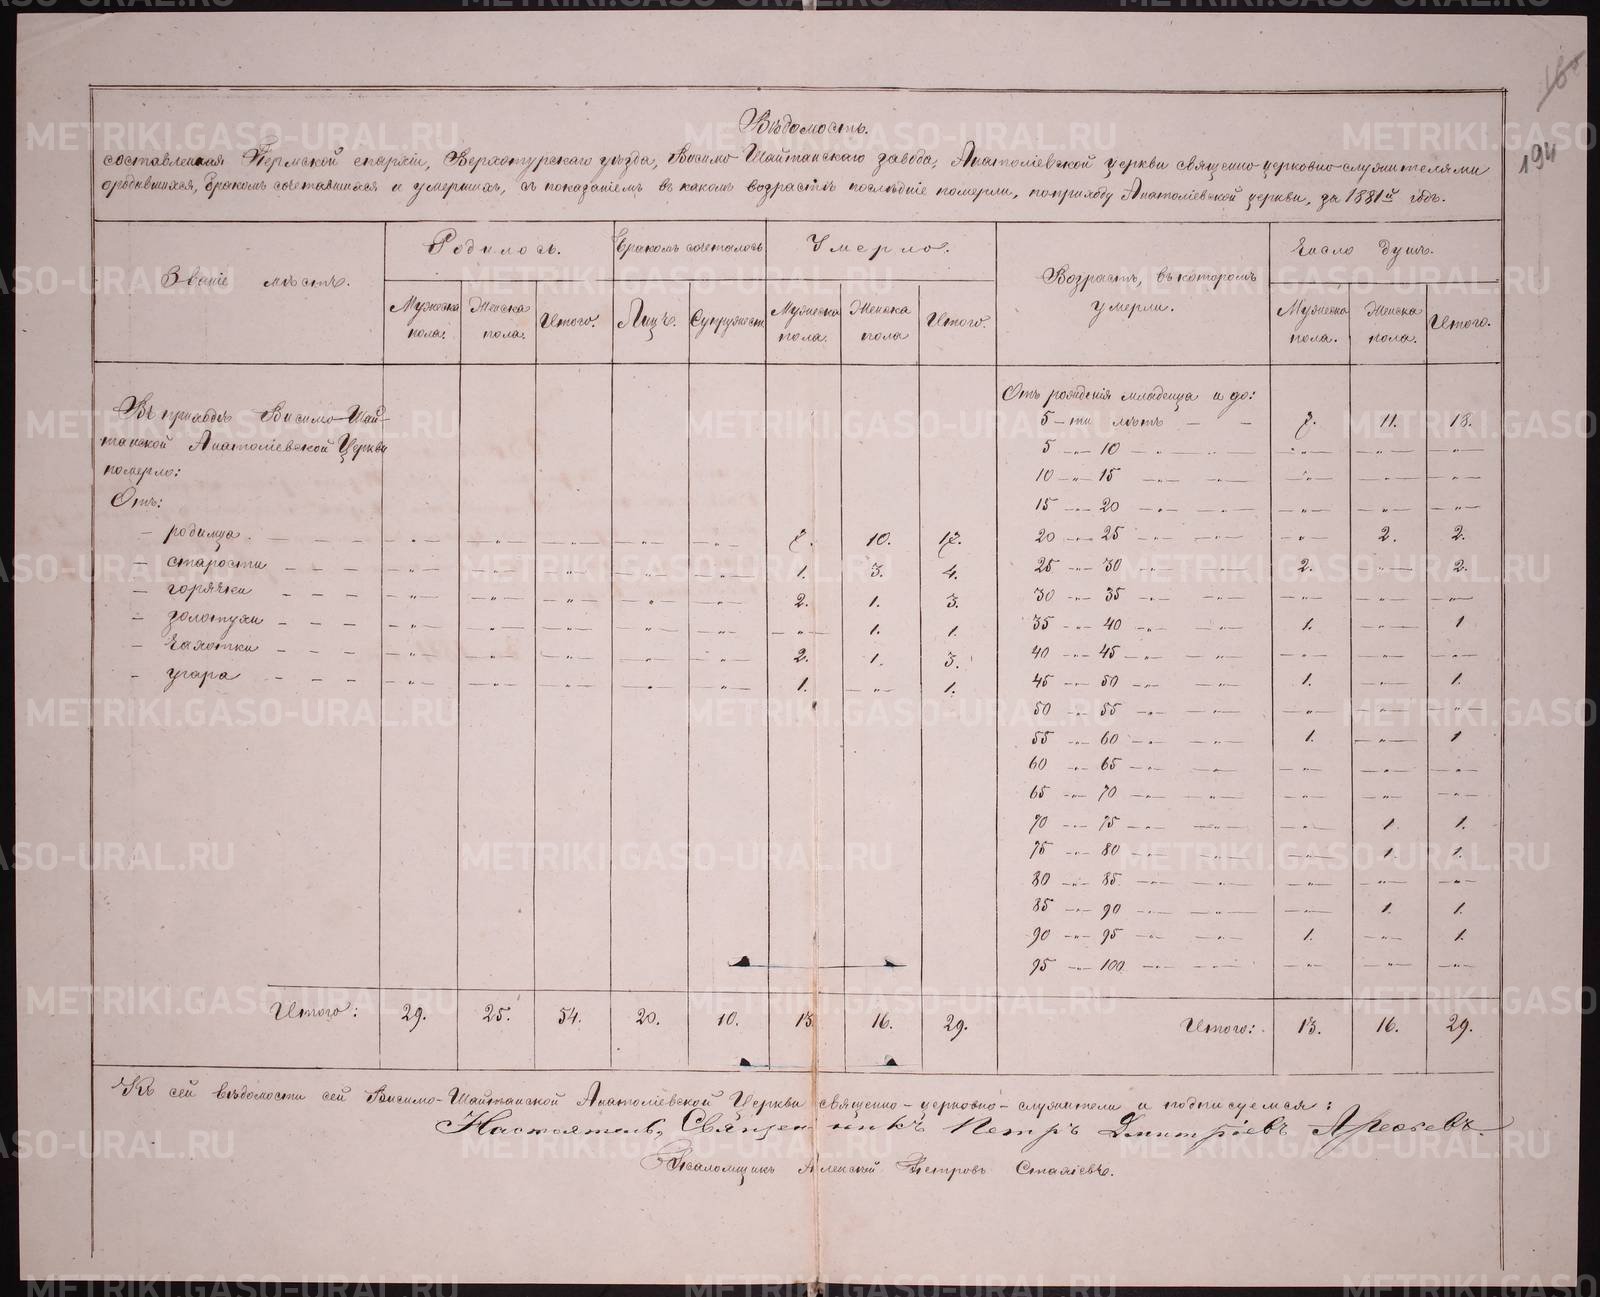 Вѣдомость.
составленная Пермской епархіи, Верхотурскаго уѣзда, Висимо-Шайтанскаго завода, Анатоліевской церкви священно-церковно-служителями
ородившихся, бракомъ сочетавшихся и умершихъ, съ показаніемъ въ какомъ возрастѣ послѣдніе померли, по приходу Анатоліевской церкви, за 1881й годъ.
194
Званіе мѣстъ.
Родилось.
Бракомъ сочеталось
Умерло.
Возрастъ, въ которомъ
умерли.
Число душъ.
Мужеска пола. Женска пола. Итого. Лицъ. Супружеств Мужеска пола. Женска пола Итого. Мужеска пола. Женска пола. Итого.
Въ приходѣ Висимо-Шай-
танской Анатоліевской Церкви
померло:
Отъ:
– родимца – – – – „ – – „ – – „ – – „ – – „ – 7. 10. 17.
– старости – – – – „ – – „ – – „ – – „ – – „ – 1. 3. 4.
– горячки – – – – „ – – „ – – „ – – „ – – „ – 2. 1. 3.
– золотухи – – – – „ – – „ – – „ – – „ – – „ – – „ – 1. 1.
– Чахотки – – – – „ – – „ – – „ – – „ – – „ – 2. 1. 3.
– угара – – – – „ – – „ – – „ – – „ – – „ – 1. – „ – 1.
Отъ рожденія младенца и до:
5-ти лѣтъ – – 7. 11. 18.
5 – „ – 10 – „ – – „ – – „ – – „ – – „ –
10 – „ – 15 – „ – – „ – – „ – – „ – – „ –
15 – „ – 20 – „ – – „ – – „ – – „ – – „ –
20 – „ – 25 – „ – – „ – – „ – 2. 2.
25 – „ – 30 – „ – – „ – 2. – „ – 2.
30 – „ – 35 – „ – – „ – – „ – – „ – – „ –
35 – „ – 40 – „ – – „ – 1. – „ – 1
40 – „ – 45 – „ – – „ – – „ – – „ – – „ –
45 – „ – 50 – „ – – „ – 1. – „ – 1.
50 – „ – 55 – „ – – „ – – „ – – „ – – „ –
55 – „ – 60 – „ – – „ – 1. – „ – 1
60 – „ – 65 – „ – – „ – – „ – – „ – – „ –
65 – „ – 70 – „ – – „ – – „ – – „ – – „ –
70 – „ – 75 – „ – – „ – – „ – 1. 1.
75 – „ – 80 – „ – – „ – – „ – 1. 1.
80 – „ – 85 – „ – – „ – – „ – – „ – – „ –
85 – „ – 90 – „ – – „ – – „ – 1. 1.
90 – „ – 95 – „ – – „ – 1. – „ – 1.
95 – „ – 100 – „ – – „ – – „ – – „ – – „ –
Итого: 29. 25. 54. 20. 10. 13. 16. 29. Итого: 13. 16. 29.
Къ сей вѣдомости сей Висимо-Шайтанской Анатоліевской Церкви священно-церковно-служители и подписуемся:
Настоятель, Священникъ Петръ Дмитріевъ
Псаломщикъ Алексѣй Петровъ
METRIKI.GASO-URAL.RU